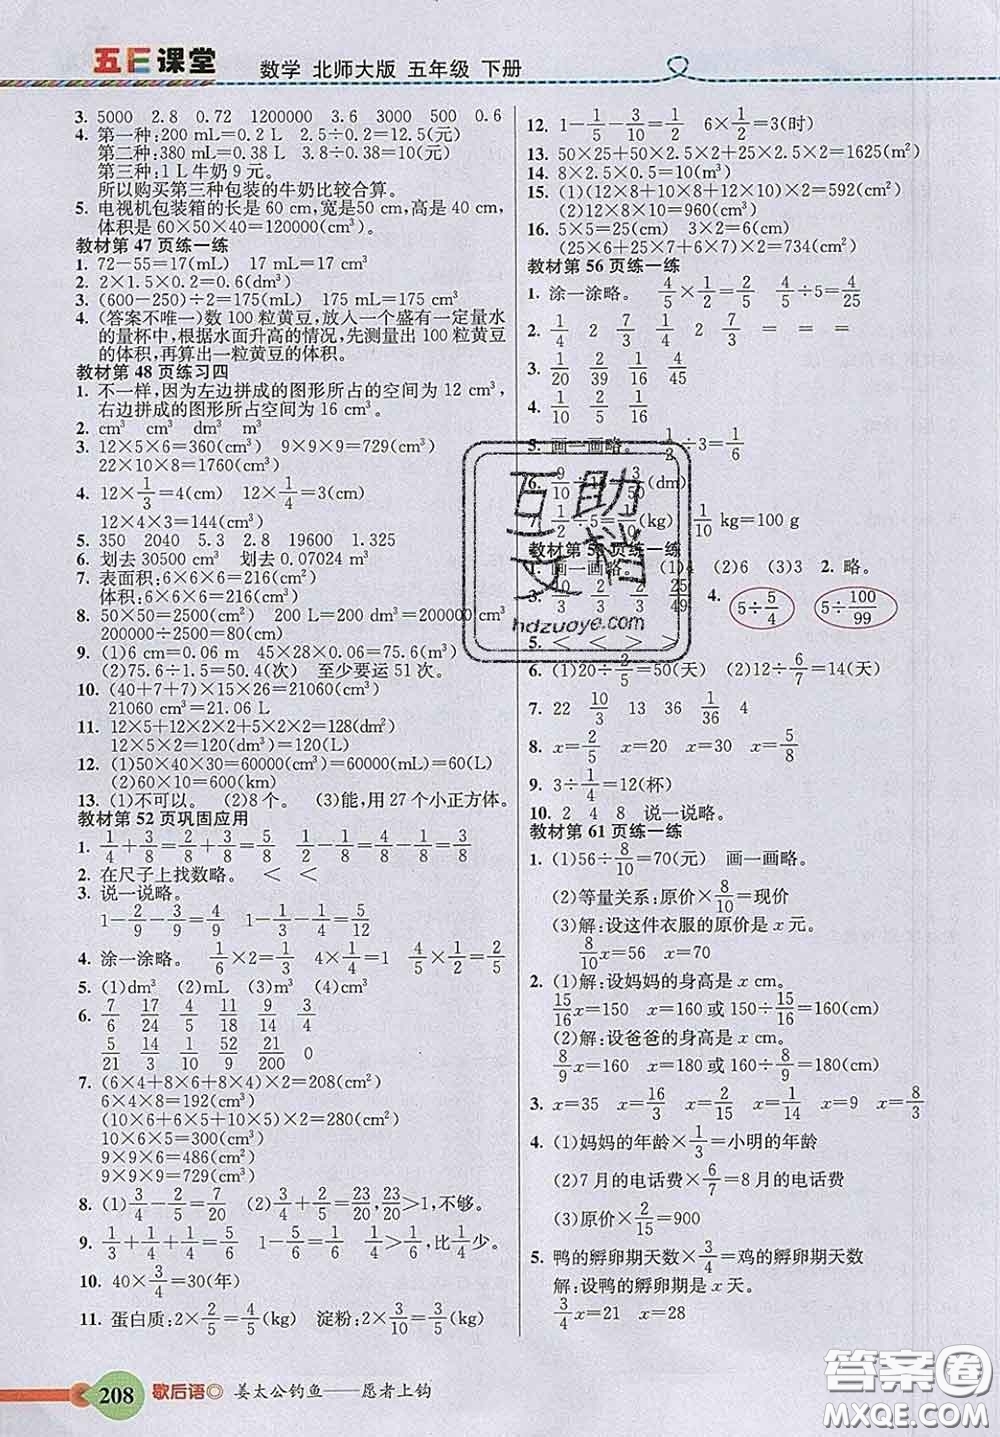 五E课堂 数学 北师大版 五年级 下册
3. 5000 2.8 0.72 1200000 3.6 3000 500 0.6
4. 第一种:200 mL=0.2 L 2.5÷0.2=12.5(元)
第二种:380 mL=0.38 L 3.8÷0.38=10(元)
第三种:1 L牛奶9元。
所以购买第三种包装的牛奶比较合算。
5. 电视机包装箱的长是60 cm,宽是50 cm,高是40 cm,
体积是60×50×40=120000(cm³)。
教材第47页练一练
1. 72-55=17(mL) 17 mL=17 cm³
2. 2×1.5×0.2=0.6(dm³)
3. (600-250)÷2=175(mL) 175 mL=175 cm³
4. (答案不唯一)数100粒黄豆,放入一个盛有一定量水
的量杯中,根据水面升高的情况,先测量出100粒黄豆
的体积,再算出一粒黄豆的体积。
教材第48页练习四
1. 不一样,因为左边拼成的图形所占的空间为12 cm³,
右边拼成的图形所占空间为16 cm³。
2. cm³ cm³ dm³ m³
3. 12×5×6=360(cm³) 9×9×9=729(cm³)
22×10×8=1760(cm³)
4. 12×1/3=4(cm) 12×1/4=3(cm)
12×4×3=144(cm³)
5. 350 2040 5.3 2.8 19600 1.325
6. 划去30500 cm³ 划去0.07024 m³
7. 表面积:6×6×6=216(cm²)
体积:6×6×6=216(cm³)
8. 50×50=2500(cm²) 200 L=200 dm³=200000 cm³
200000÷2500=80(cm)
9. (1)6 cm=0.06 m 45×28×0.06=75.6(m³)
(2)75.6÷1.5=50.4(次) 至少要运51次。
10. (40+7+7)×15×26=21060(cm³)
21060 cm³=21.06 L
11. 12×5+12×2×2+5×2×2=128(dm²)
12×5×2=120(dm³)=120(L)
12. (1)50×40×30=60000(cm³)=60000(mL)=60(L)
(2)60×10=600(km)
13. (1)不可以。 (2)8个。 (3)能,用27个小正方体。
教材第52页巩固应用
1. 1/4+3/8=2/8+3/8=5/8 1/2-1/8=4/8-1/8=3/8
2. 在尺子上找数略。 < <
3. 说一说略。
1-2/9-3/9=4/9 1-1/3-1/4=5/12
4. 涂一涂略。 1/6×2=1/3 4×1/4=1 4/5×1/2=2/5
5. (1)dm³ (2)mL (3)m³ (4)cm³
6. 7/6 17/24 4/5 11/18 9/14
5/21 14/3 1/10 52/9 21/20 0
7. (6×4+8×6+4×8)×2=208(cm²)
6×4×8=192(cm³)
(10×6+6×5+10×5)×2=280(cm²)
10×6×5=300(cm³)
9×9×6=486(cm²)
9×9×9=729(cm³)
8. (1)3/4-2/5=7/20 (2)3/4+2/5=23/20,23/20>1,不够。
9. 1/3+1/4+1/4=5/6 1-5/6=1/6 1/6<1/4,比1/4少。
10. 40×3/4=30(年)
11. 蛋白质:2×2/5=4/5(kg) 淀粉:2×3/10=3/5(kg)
12. 1-1/5-3/10=1/2 6×1/2=3(时)
13. 50×25+50×2.5×2+25×2.5×2=1625(m²)
14. 8×2.5×0.5=10(m³)
15. (1)(12×8+10×8+12×10)×2=592(cm²)
(2)12×8×10=960(cm³)
16. 5×5=25(cm) 25×6=150(cm³)
(25×6+25×7+6×7)×2=734(cm²)
教材第56页练一练
1. 涂一涂略。 4/5×1/2=2/5 4/5÷5=4/25
2. 1/4 2 7/3 7/3 = = =
3. 1/20 2/39 1/16 4/45
4. 1/10 2/5 1/4 1/16
5. 画一画略。 1/2÷3=1/6
6. 9/10 3/50(dm)
7. 1/2÷5=1/10(kg) 1/10 kg=100 g
教材第5 页练一练
1. 画一画略。 (1)4 (2)6 (3)3 2. 略。
3. 10/3 2/3 2/3 25/49 4. 5÷5/4 5÷100/99
5. < < > >
6. (1)20÷2/5=50(天) (2)12÷6/7=14(天)
7. 22 10/3 13 36 1/36 4
8. x=2/5 x=20 x=30 x=5/8
9. 3÷1/4=12(杯)
10. 2 4 8 说一说略。
教材第61页练一练
1. (1)56÷8/10=70(元) 画一画略。
(2)等量关系:原价×8/10=现价
(3)解:设这件衣服的原价是x元。
8/10x=56 x=70
2. (1)解:设妈妈的身高是x cm。
15/16x=150 x=160或150÷15/16=160(cm)
(2)解:设爸爸的身高是x cm。
8/9x=160 x=180或160÷8/9=180(cm)
3. x=35 x=16/3 x=2/15 x=1/14 x=9 x=8/3
4. (1)妈妈的年龄×1/3=小明的年龄
(2)7月的电话费×6/7=8月的电话费
(3)原价×2/15=900
5. 鸭的孵卵期天数×3/4=鸡的孵卵期天数
解:设鸭的孵卵期是x天。
3/4x=21 x=28
互助文档
hdzuoye.com
208 歇后语 姜太公钓鱼——愿者上钩
答案圈
MXQE.COM